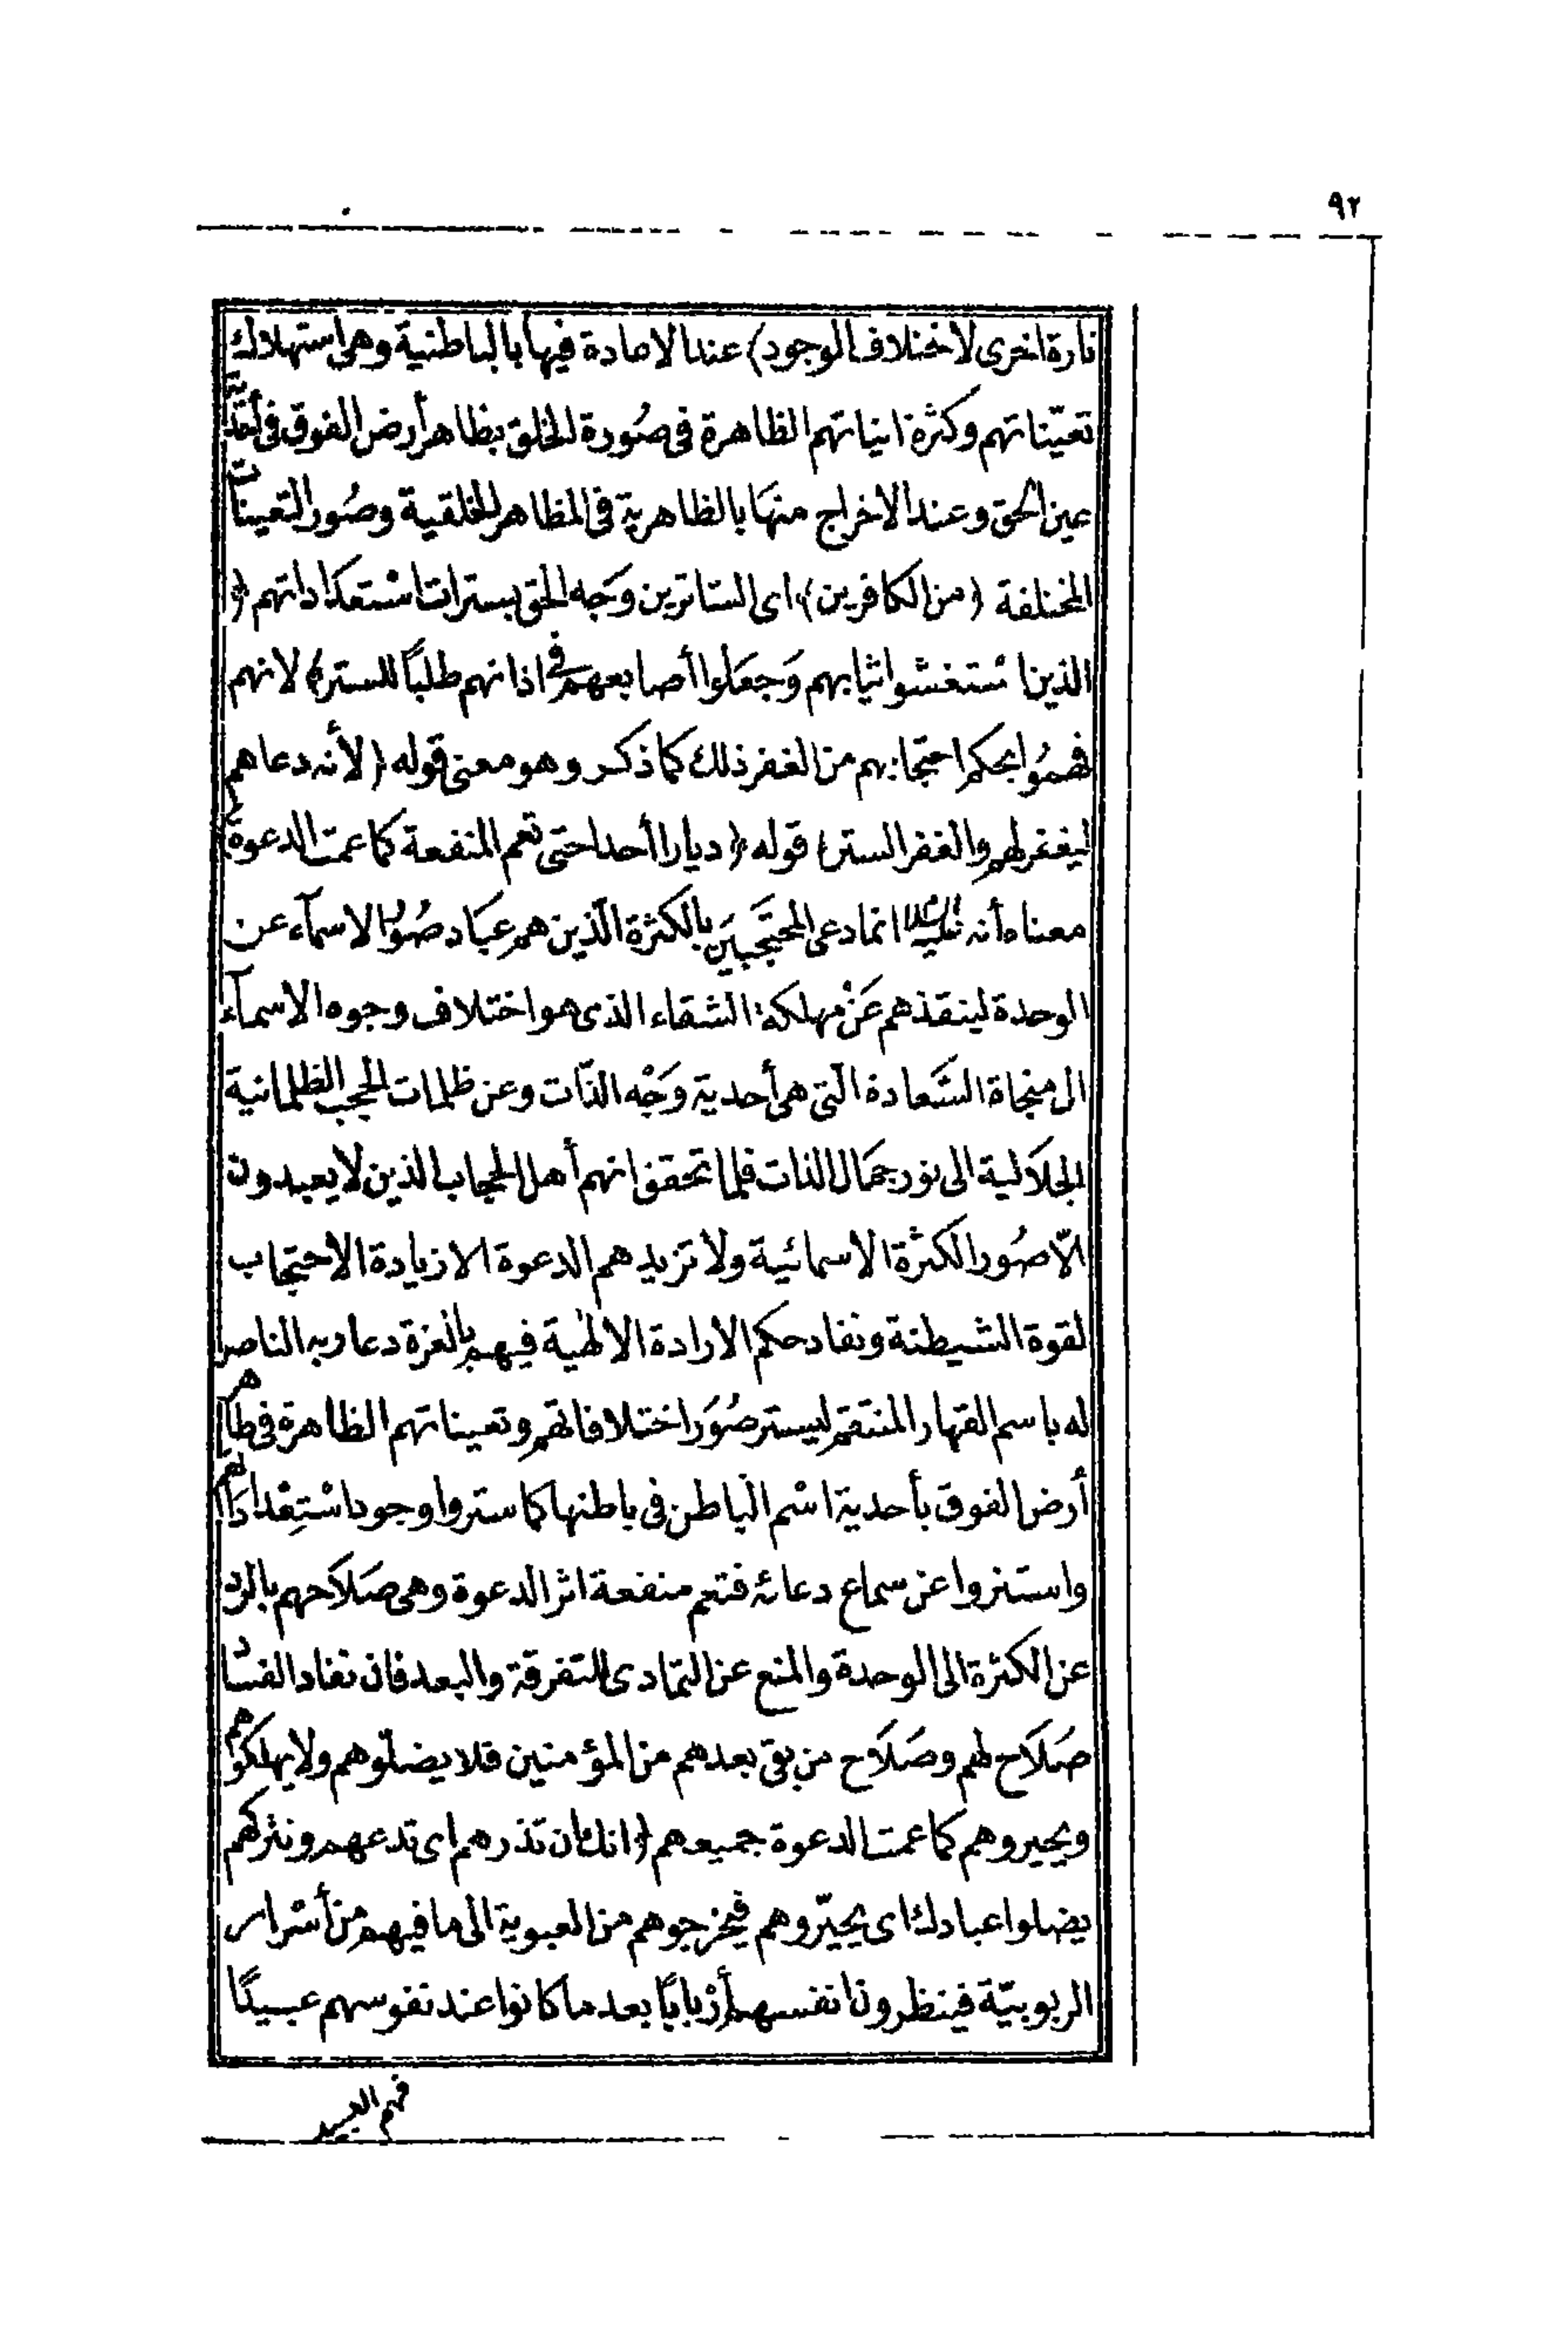 ٩٢
تارة اخرى لاختلاف الوجوه) عند الاعادة فيها بالباطنية وهى استهلاك
تعيّناتهم وكثرة انياتهم الظاهرة فى صُورة الخلق بظاهر أرض الفوق فى أحدية
عين الحق وعند الاخراج منهَا بالظاهرية فى المظاهر الخلقية وصُور التعينات
المختلفة (من الكافرين) اى الساترين وَجه الحق بسترات استعداداتهم (
الذين استغشوا ثيابهم وَجعَلوا أصابعهم فى اذانهم طلبًا للستر) لانهم
فهمُوا بحكم احتجابهم من الغفر ذلك كما ذكر وهو معنى قوله (لأنه دعاهم
ليغفر لهم والغفر الستر) قوله (ديارا أحدا حتى تعم المنفعة كما عمت الدعوة)
معناه أنه عليه السلام انما دعى المحتجبَين بالكثرة الّذين هم عبَاد صُوَر الاسمآء عن
الوحدة لينقذهم عَنْ مهلكة الشقاء الذى هو اختلاف وجوه الاسمآء
الى منجاة السَّعادة الّتى هى أحدية وَجْه الذّات وعن ظلمات الحجب الظلمانية
الجلَالية الى نور جمَال الذات فلما تحقق انهم أهل الحجاب الذين لا يعبدون
الّا صُور الكثرة الاسمائية ولا تزيدهم الدعوة الا زيادة الاحتجاب
لقوة الشيطنة ونفاد حكم الارادة الالهٰية فيهم بالعزة دعا ربه الناصر
له باسم القهار المنتقم ليستر صُوَر اختلافاتهم وتعيناتهم الظاهرة فى ظاهر
أرض الفوق بأحدية اسْم الباطن فى باطنها كما ستروا وجود اسْتِعْدادَاتهم
واستتروا عن سماع دعائه فتعم منفعة اثر الدعوة وهى صَلَاحهم بالرد
عن الكثرة الى الوحدة والمنع عن التمادى للتفرقة والبعد فان نفاد الفسَاد
صَلَاح لهم وصَلَاح من بقى بعدهم من المؤمنين فلا يضلّوهم ولا يهلكوهم
ويحيروهم كما عمت الدعوة جميعهم (انك ان تذرهم اى تدعهم ونتركهم
يضلوا عبادك اى يحيّروهم فيخرجوهم من العبوية الى ما فيهم من أسْرار
الربوبيّة فينظرون انفسهم أرْبابًا بعد ما كانوا عند نفوسهم عبيدًا
فهم العبيد